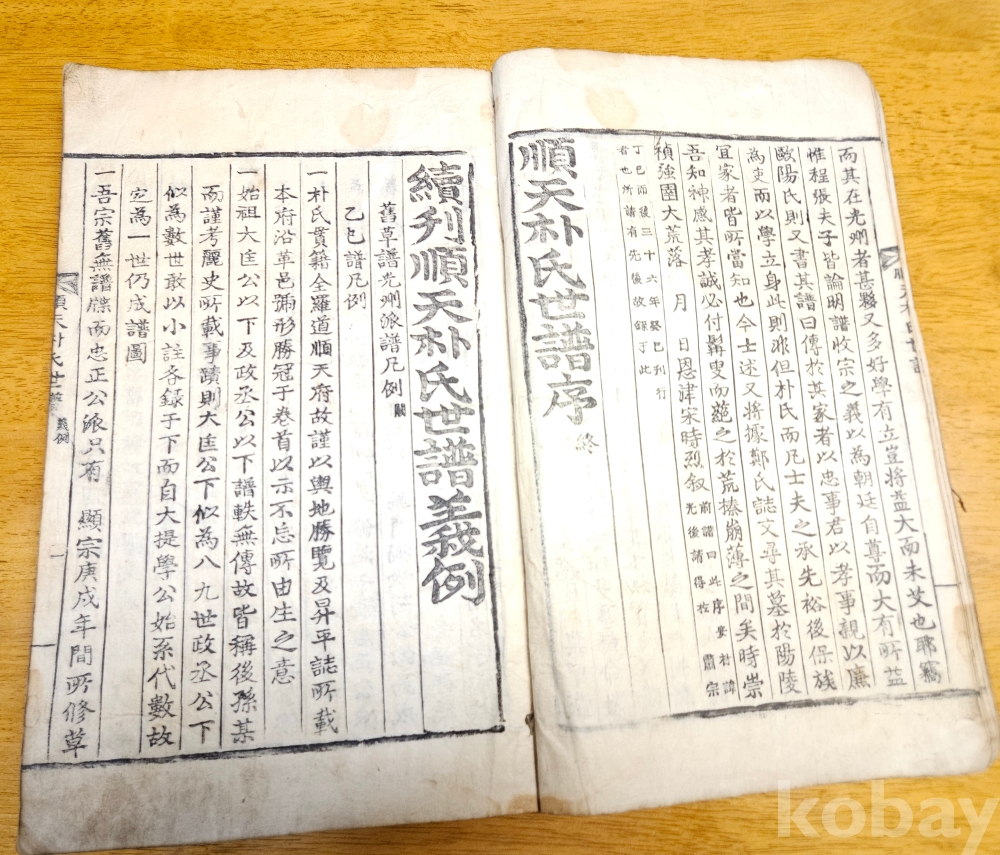 而其在光州者甚夥又多好學有立豈將益大而未艾也耶竊
惟程張夫子皆論明譜收宗之義以為朝廷自尊而大有所益
歐陽氏則又書其譜曰傳於其家者以忠事君以孝事親以廉
為吏而以學立身此則非但朴氏而凡士夫之承先裕後保族
宜家者皆所當知也今士述又將據鄭氏誌文尋其墓於陽陵
吾知神感其孝誠必付髯叟而蓰之於荒榛崩薄之間矣時崇
禎強圉大荒落 月 日恩津宋時烈叙
前譜曰此序安村諱
光後請得於
肅宗
丁巳而後三十六年癸巳刊行
君也所請有先後故錄于此
順天朴氏世譜序 終
順天朴氏世譜
續刊順天朴氏世譜義例
舊草譜光州派譜凡例
乙巳譜凡例
一朴氏貫籍全羅道順天府故謹以輿地勝覽及昇平誌所載
本府沿革邑號形勝冠于卷首以示不忘所由生之意
一始祖大匡公以下及政丞公以下譜軼無傳故皆稱後孫某
而謹考麗史所載事蹟則大匡公下似為八九世政丞公下
似為數世敢以小註各錄于下而自大提學公始系代數故
定為一世仍成譜圖
一吾宗舊無譜牒而忠正公派只有 顯宗庚戌年間所修草
順天朴氏世譜 義例